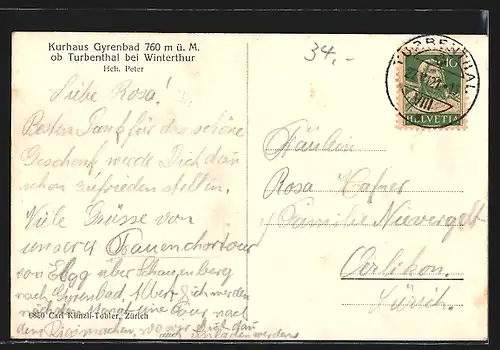 Kurhaus Gyrenbad 760 m ü. M.
ob Turbenthal bei Winterthur
Hch. Peter
34.-
TURBENTHAL
VIII
10
HELVETIA
Liebe Rosa!
Besten Dank für das schöne
Geschenk, werde Dich dan
schon zufrieden stellen.
Viele Grüsse von
unserer Frauenchortour
von Elgg über Schauenberg
nach Gyrenbad,
nach
6830 Carl Künzli-Tobler, Zürich
Fräulein
Rosa Hafner
Familie Nievergelt
Oerlikon.
Zürich.